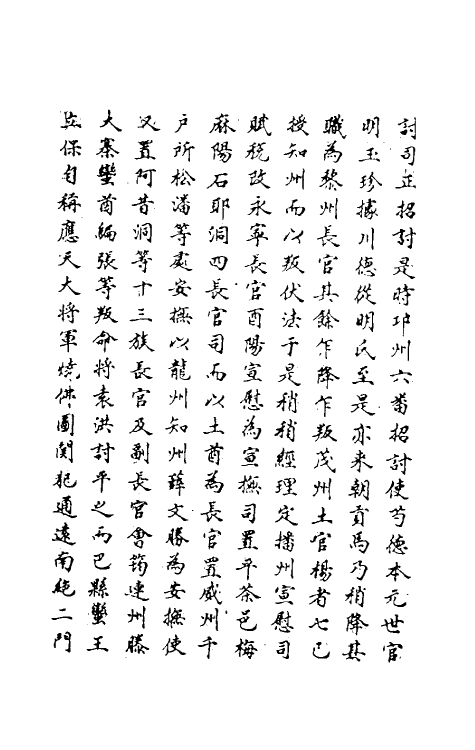 討司正招討是時邛州六番招討使芍德本元世官
明玉珍據川德從明氏至是亦来朝貢馬乃稍降其
職為黎州長官其餘乍降乍叛茂州土官楊者七已
授知州而以叛伏法于是稍稍經理定播州宣慰司
賦税改永寧長官酉陽宣慰為宣撫司置平茶邑梅
麻陽石耶洞四長官司而以土酋為長官置威州千
户所松潘等處安撫以龍州知州薛文勝為安撫使
又置阿昔洞等十三族長官及副長官會筠連州滕
大寨蠻酋編張等叛命將袁洪討平之而巴縣蠻王
立保自稱應天大將軍燒佛圖関犯通遠南紀二門